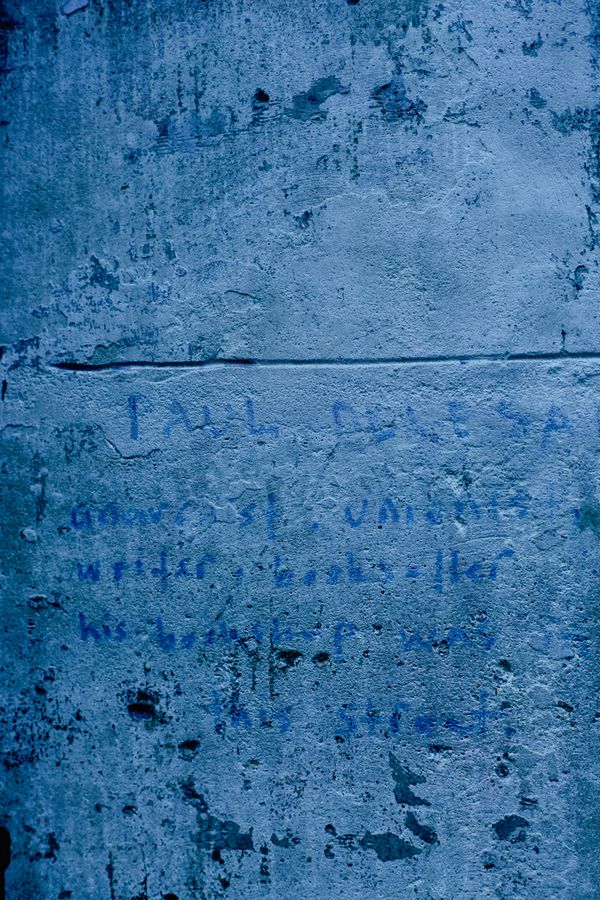 PAUL DELESA
anarchist, unionist,
writer, bookseller
his bookshop was in
this street.